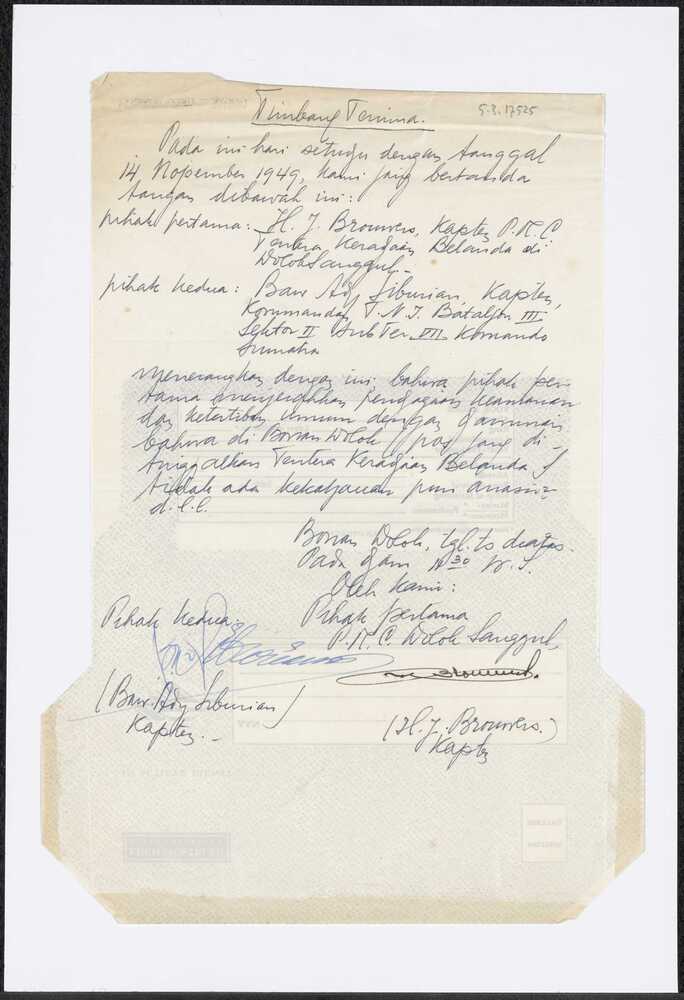 Timbang Terima.
5.3.17525
Pada ini hari setudju dengan tanggal
14 Nopember 1949, kami jang bertanda
tangan dibawah ini:
pihak pertama: H. J. Brouwers, Kapten P.M.C
Tentera Keradjaan Belanda di
Dolok Sanggul.
pihak kedua: Bawr Ady Siburian, Kapten,
Kommandan T.N.I. Bataljon III
Sektor II Sub Ter. VII Komando
Sumatra
Menerangkan dengan ini, bahwa pihak per-
tama menjerahkan pendjagaan keamanan
dan ketertiban umum dengan
bahwa di Bonan Dolok (pos jang di-
tinggalkan Tentera Keradjaan Belanda)
tidak ada kekatjauan pun
d.l.l.
Bonan Dolok, tgl. ts diatas.
Pada djam 30 W.S.
Oleh kami:
Pihak kedua: Pihak pertama
P.M.C. Dolok Sanggul,
(Bawr. Ady Siburian)
Kapten.
(H. J. Brouwers.)
Kapten